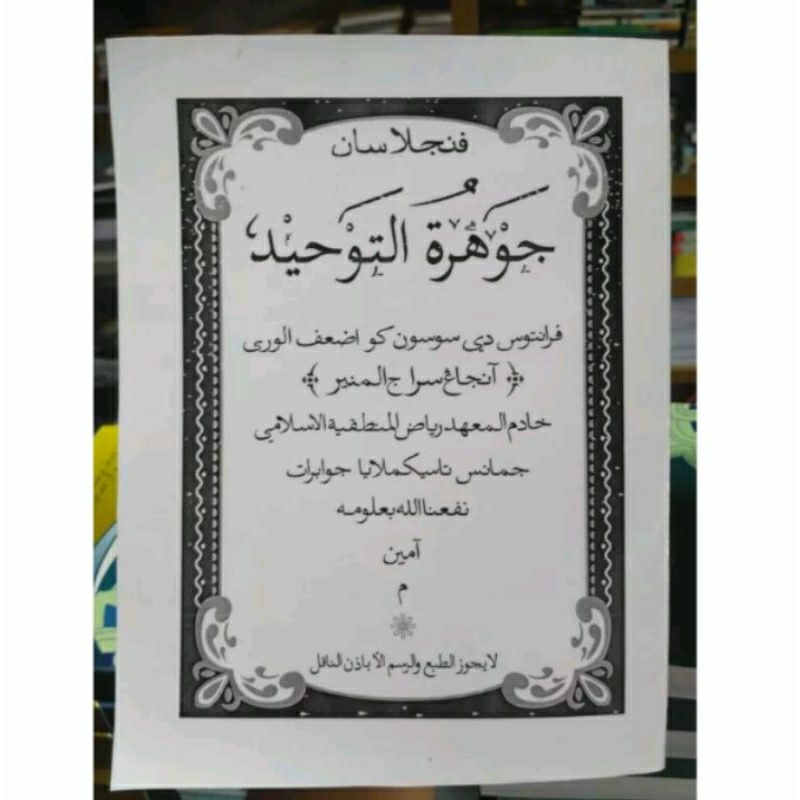 فنجلاسان
جَوْهَرَةُ التَوْحِيْدِ
فرانتوس دي سوسون كو اضعف الورى
﴿ آنجاغ سراج المنير ﴾
خادم المعهد رياض المنطقية الاسلامي
جمانس تاسيكملايا جوابرات
نفعنا الله بعلومه
آمين
م
لا يجوز الطبع والرسم الا باذن الناقل